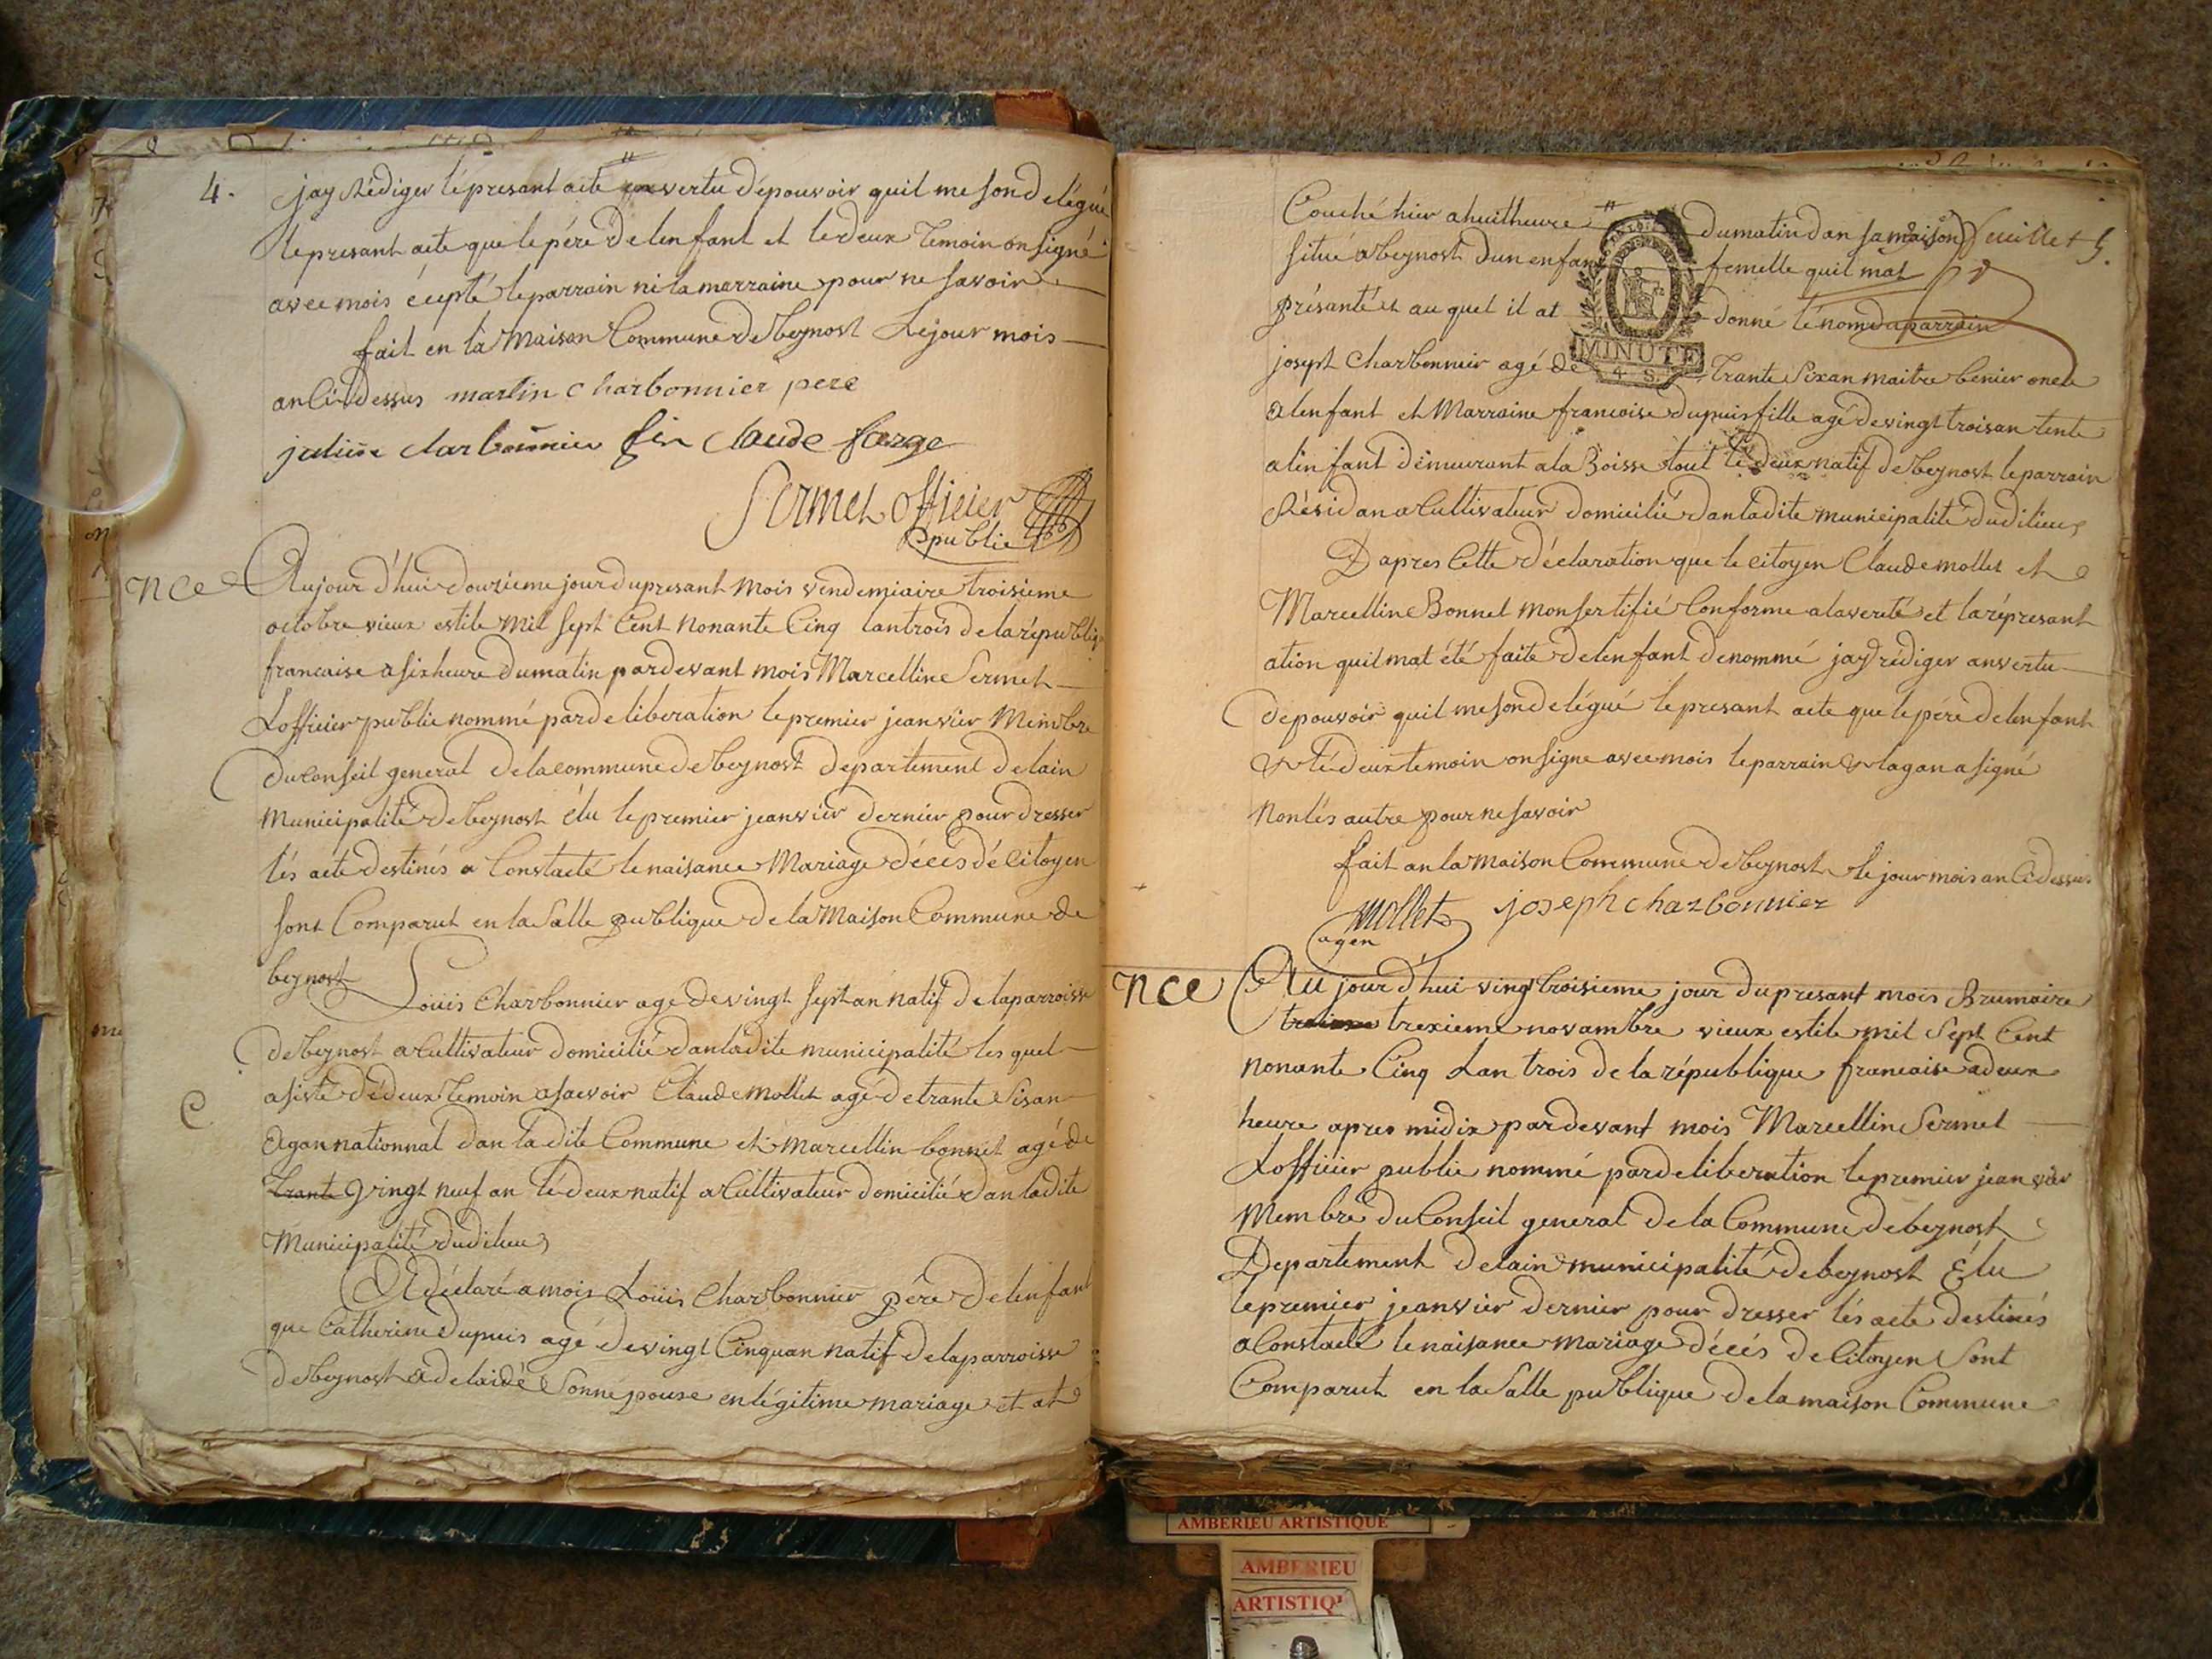 4.
jay Rédiger lépresant acte en vertu dépouvoir quil me son délégué
le presant acte que le pére delenfant et le deux Temoin on signé
avec mois écepté le parrain ni la marraine pour ne savoir
fait en la Maison Commune de beynost Le jour mois
an Ci dessus martin charbonnier pere
charbonnier claude farge
Sermet officier
public
nce
Aujour d'hui douzieme jour du presant Mois vendemiaire troisieme
octobre vieux estile Mil sept Cent Nonante Cinq lan trois de la républiq
francaise a six heure du matin par devant mois Marcelline Sermet
Lofficier public nommé par deliberation le premier jeanvier Membre
du Conseil general de la commune de beynost departement delain
Municipalité de beynost élu le premier jeanvier dernier pour dresser
lés acte destinés a Constacté le naisance Mariage décés dé Citoyen
sont Comparut en la Salle publique de la Maison Commune de
beynost Loüis Charbonnier agé de vingt sept an natif de la parroisse
de beynost a Cultivateur domicilié dan ladite municipalité les quel
asisté dédeux temoin asacvoir Claude Mollet agé de trante Sisan
C
Agan nationnal dan ladite Commune et Marcellin bonnet agé de
trante vingt neuf an lédeux natif a Cultivateur domicilié dan ladite
Municipalité dudilieu
A déclaré a mois Loüis Charbonnier pére delenfant
que Catherine dupuis agé de vingt Cinquan natif de la parroisse
de beynost Son népouse en légitime mariage et at
feuillet 5.
Couché hier a huit heure du matin dan sa maison
situé a beynost dun enfant femelle quil mat
présanté et au quel il at donné lé nom parrain
MINUTE
4 S.
josept Charbonnier agé de trante Sixan maitre oncle
a lenfant et Marraine francoise dupuis fille agé de vingt trois an tente
a lenfant démeurant a la Boisse tout lé deux natif de beynost le parrain
Résidan a Cultivateur domicilié dan ladite municipalité dudilieu
D apres Cette déclaration que le citoyen Claude mollet et
Marcelline Bonnet mon sertifié Conforme a la vereté et la réprésant
ation quil mat été faite delenfant denommé jay rédiger an vertu
dépouvoir quil me son délégué le presant acte que le pére delenfant
lé deux temoin on signe avec mois le parrain lagan a signé
Non lés autre pour ne savoir
fait an la Maison Commune de beynost le jour mois an Ci dessus
Mollet joseph charbonnier
agen
nce
Au jour d'hui vingt troisieme jour du presant mois Brumaire
trexieme novambre vieux estile mil Sept Cent
nonante Cinq Lan trois de la république francaise a deux
heure apres midix par devant mois Marcellin Sermet
Lofficier public nommé par deliberation le premier jeanvier
Membre du Conseil general de la Commune de beynost
Departement delain municipalité de beynost Élu
le premier jeanvier dernier pour dresser lés acte destinés
a Constacté le naisance mariage décés de Citoyen Sont
Comparut en la Salle publique de la maison Commune
AMBERIEU ARTISTIQUE
AMBERIEU
ARTISTIQ'